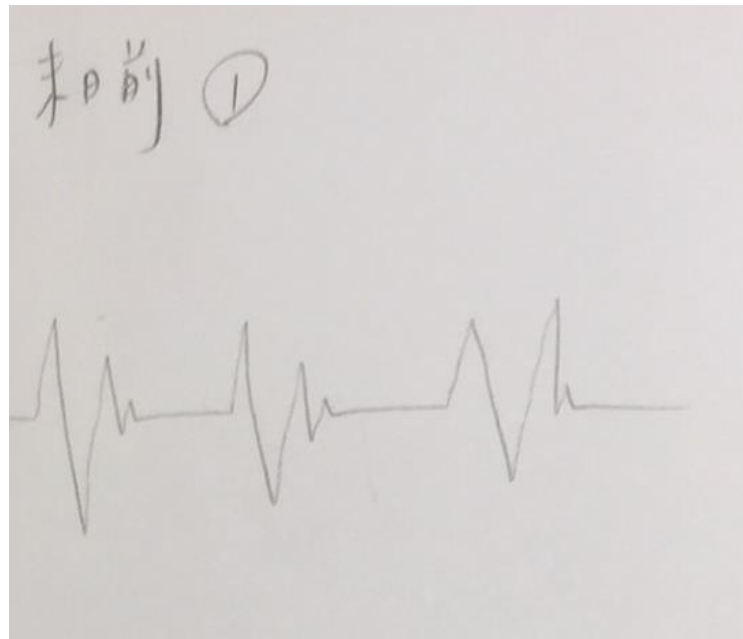 来日前 ①